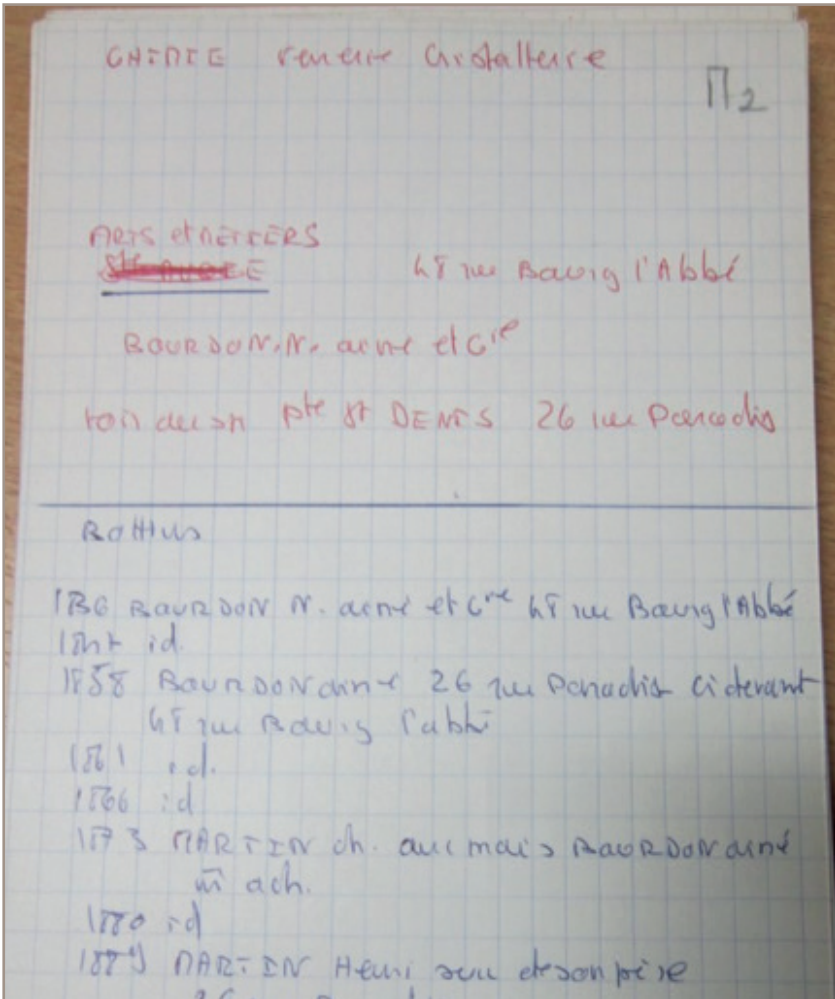 CHIMIE verrerie Cristallerie
M2
ARTS et METIERS
48 rue Bourg l'Abbé
BOURDON. N. ainé et Cie
pte St DENIS 26 rue Paradis
Bottius
BOURDON N. ainé et Cie 48 rue Bourg l'Abbé
id.
1858 BOURDON ainé 26 rue Paradis ci devant
48 rue Bourg l'abbé
1861 id.
1866 id
1873 MARTIN ch. anc mais BOURDON ainé
m ach.
1880 id
MARTIN Henri succ de son père